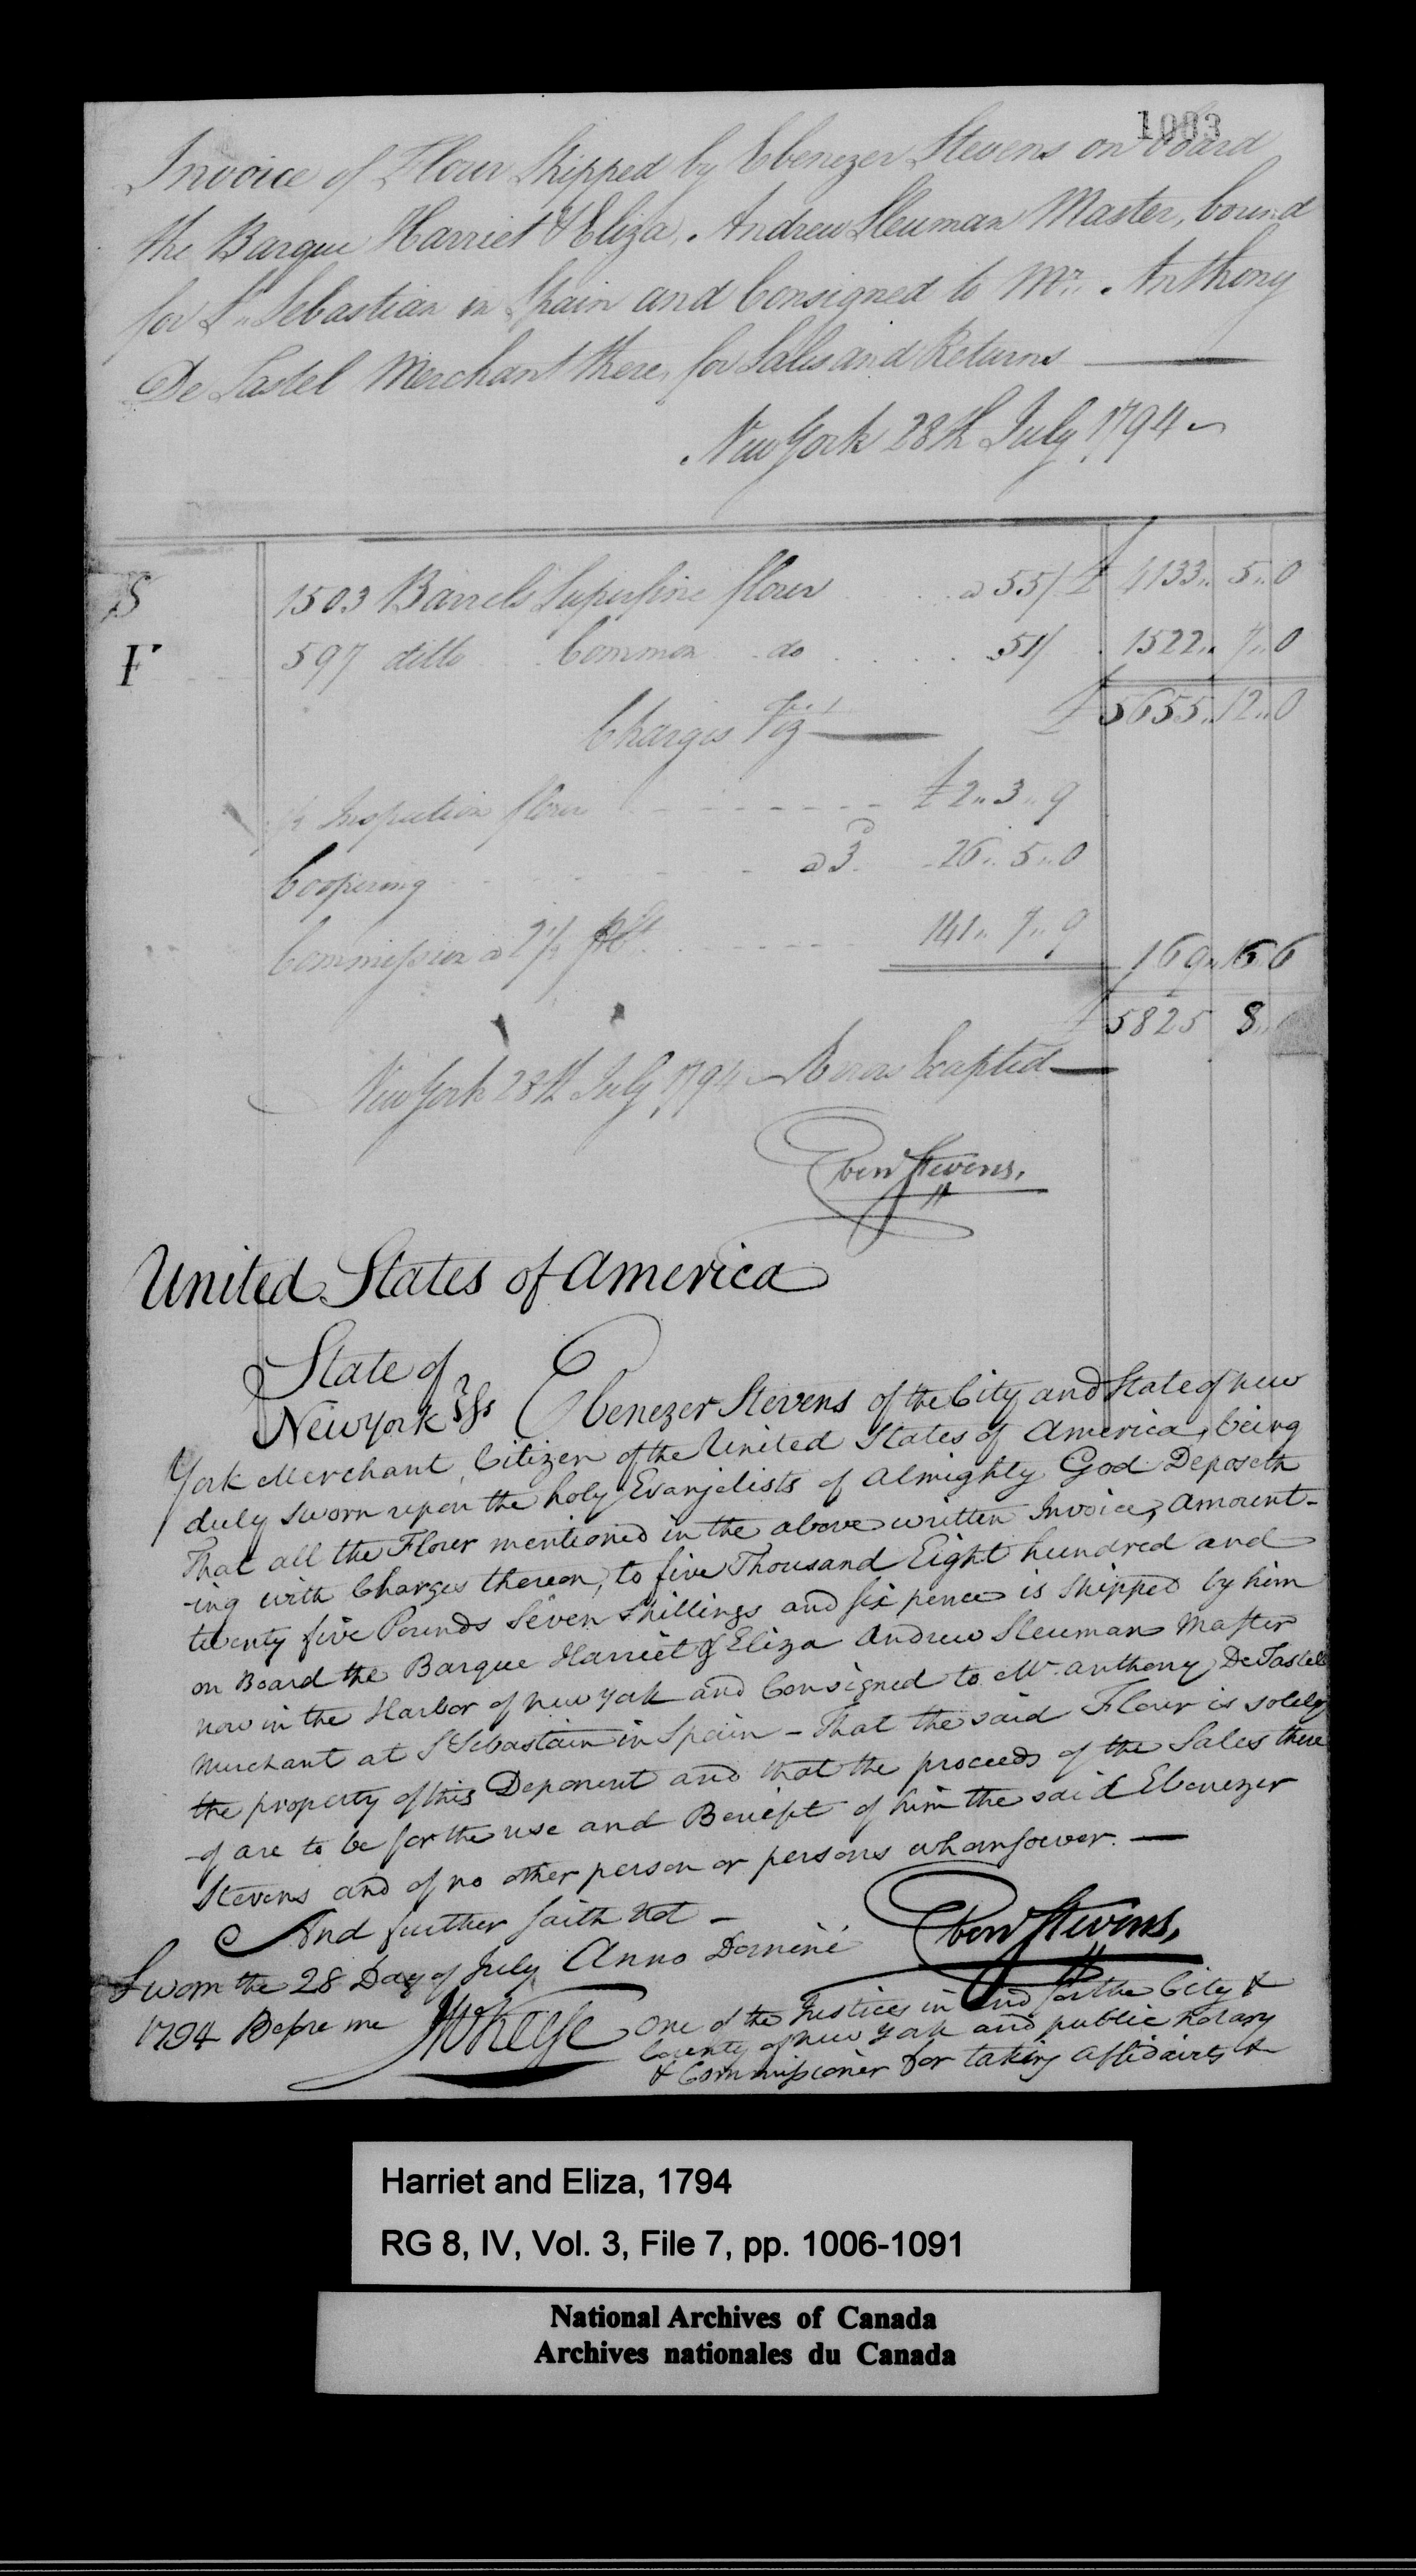 1083
Invoice of Flour Shipped by Ebenezer Stevens on board
the Barque Harriet & Eliza, Andrew Sleuman Master, bound
for St. Sebastian in Spain and Consigned to Mr. Anthony
De Tastel Merchant there, for Sales and Returns —
New York 28th July 1794
S 1503 Barrels Superfine flour a 55/ £ 4133 ,, 5 ,, 0
F 597 ditto Common do 51/ 1522 ,, 7 ,, 0
£ 5655 ,, 12 ,, 0
Charges Viz
Inspection flour £ 2 ,, 3 ,, 9
Coopering a 3d 26 ,, 5 ,, 0
Commission a 2½ 141 ,, 7 ,, 9
169 ,, 16 6
£ 5825 8 ,,
New York 28th July 1794 Errors Excepted
Eben Stevens,
United States of America
State of
New York } Ss Ebenezer Stevens of the City and State of new
York Merchant, Citizen of the United States of America, being
duly sworn upon the holy Evanjelists of Almighty God Deposeth
That all the Flour mentioned in the above written Invoice, amount-
-ing with Charges thereon, to five Thousand Eight hundred and
twenty five Pounds Seven shillings and six pence is Shipped by him
on Board the Barque Harriet & Eliza Andrew Sleuman Master
now in the Harbor of new york and Consigned to Mr. anthony De Tastell
Merchant at St Sebastain in Spain - That the said Flour is solely
the property of this Deponent and that the proceeds of the Sales there
-of are to be for the use and Benefit of him the said Ebenezer
Stevens and of no other person or persons whomsoever. —
And further saith Not —
Eben Stevens,
Sworn the 28 Day of July Anno Domini
1794 Before me J Keese One of the Justices in and for the City &
County of new york and public Notary
& Commissioner for taking affidavits &
Harriet and Eliza, 1794
RG 8, IV, Vol. 3, File 7, pp. 1006-1091
National Archives of Canada
Archives nationales du Canada